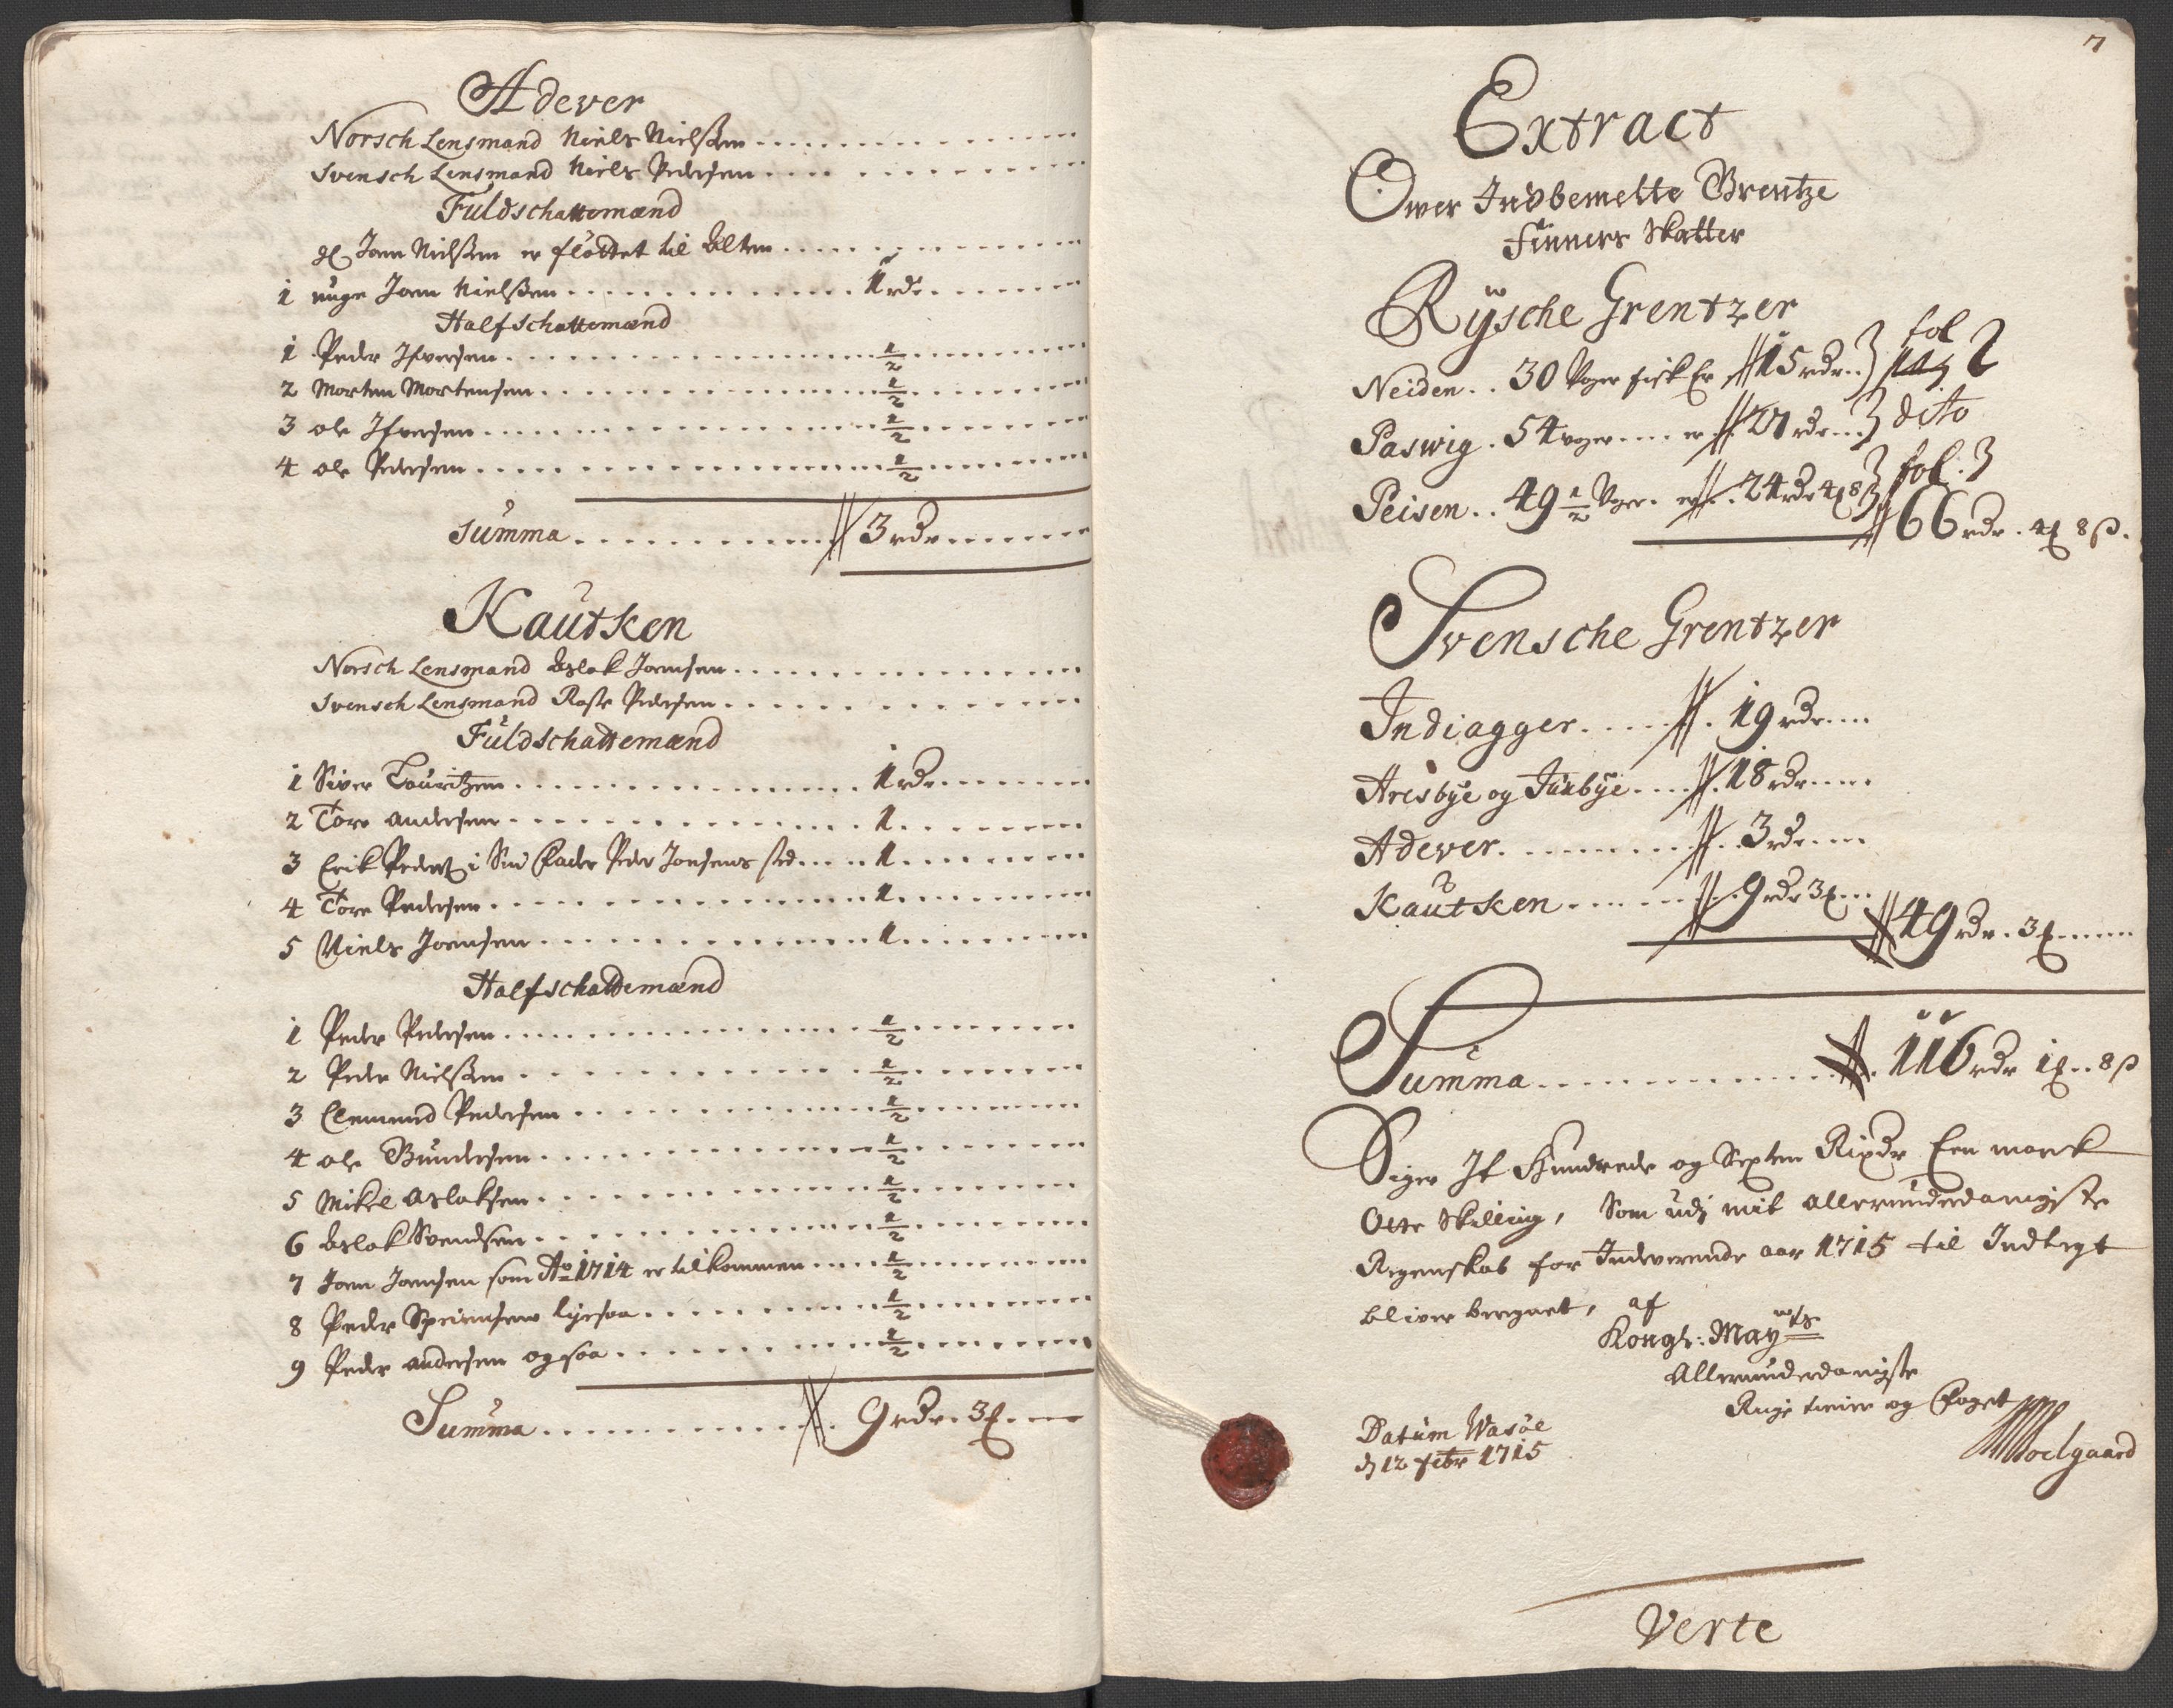 Adever
Norsch Lensmand Niels Nielßen
Svensch Lensmand Niels Pedersen
Fuldschattemænd
gl Joen Nielßen er flöttet til Alten
1 unge Joen Nielßen 1 rdr
Halfschattemænd
1 Peder Ifversen 1/2
2 Morten Mortensen 1/2
3 ole Ifversen 1/2
4 ole Pedersen 1/2
Summa 3 rdr
Kautken
Norsch Lensmand Aslak Joensen
Svensch Lensmand Pedersen
Fuldschattemænd
1 Siver Lauritzen 1 rdr
2 Tore Andersen 1
3 Erik Peders i Sin Fader Peder Jonsens sted 1
4 Tore Pedersen 1
5 Niels Joensen 1
Halfschattemænd
1 Peder Pedersen 1/2
2 Peder Nielßen 1/2
3 Clemend Pedersen 1/2
4 ole Gundersen 1/2
5 Mikel Aslaksen 1/2
6 Aslak Svendsen 1/2
7 Joen Joensen som Ao 1714 er tilkommen 1/2
8 Peder ligesaa 1/2
9 Peder Andersen ogsaa 1/2
Summa 9 rdr 3
7
Extract
Over Indbemelte Grentze
Finners Skatter
Rysche Grentzer
Neiden 30 Voger fisk Er 15 rdr fol 2
Paswig 54 voger er 27 rdr dito
Peisen 49 1/2 Voger er 24 rdr 4 8 fol. 3
66 rdr. 4 8 ß.
Svensche Grentzer
Indiagger 19 rdr
Aresbye og Juxbye 18 rdr
Adever 3 rdr
Kautken 9 rdr 3
49 rdr. 3
Summa 116 rdr 1 8 ß
Siger It Hundrede og Sexten Rixdr Een marck
Otte Skilling, Som udj mit allerunderdanigste
Regenskab for Indeverende aar 1715 til Indtegt
bliver beregnet, af
Kongl: Mayts
Allerunderdanigste
og Foget
Datum Wasöe
d 12 febr 1715
Soelgaard
Verte